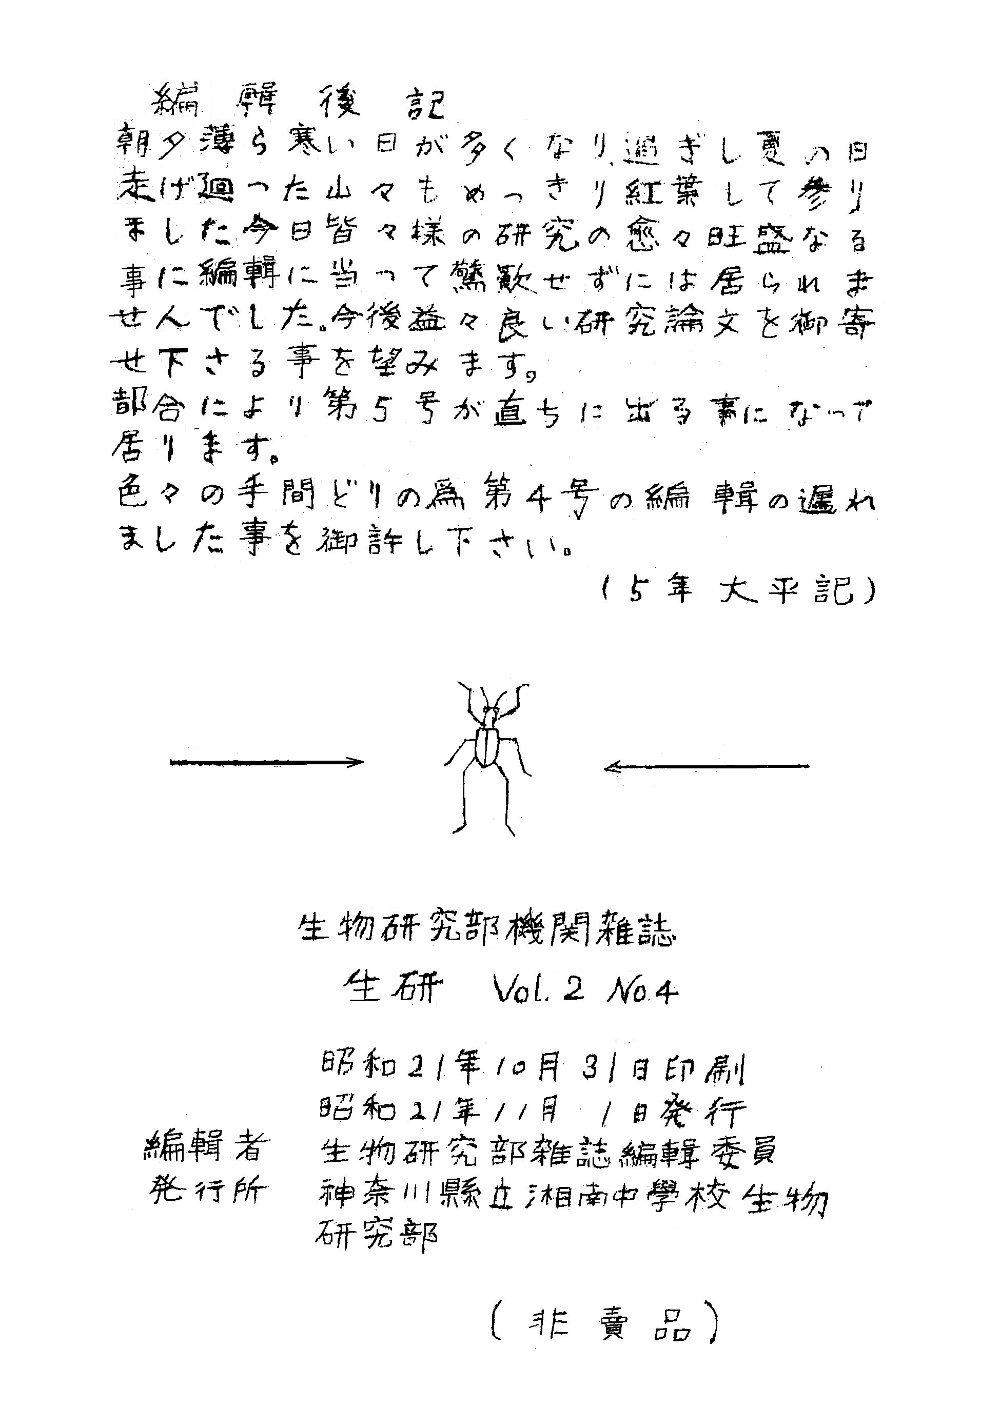 編輯後記
朝夕薄ら寒い日が多くなり、過ぎし夏の日
走げ廻った山々もめっきり紅葉して参り
ました今日皆々様の研究の愈々旺盛なる
事に編輯に当って驚歎せずには居られま
せんでした。今後益々良い研究論文を御寄
せ下さる事を望みます。
都合により第5号が直ちに出る事になって
居ります。
色々の手間どりの為第4号の編輯の遅れ
ました事を御許し下さい。
(5年大平記)
生物研究部機関雑誌
生研 Vol.2 No.4
昭和21年10月31日印刷
昭和21年11月1日発行
編輯者 生物研究部雑誌編輯委員
発行所 神奈川縣立湘南中學校生物
研究部
(非賣品)